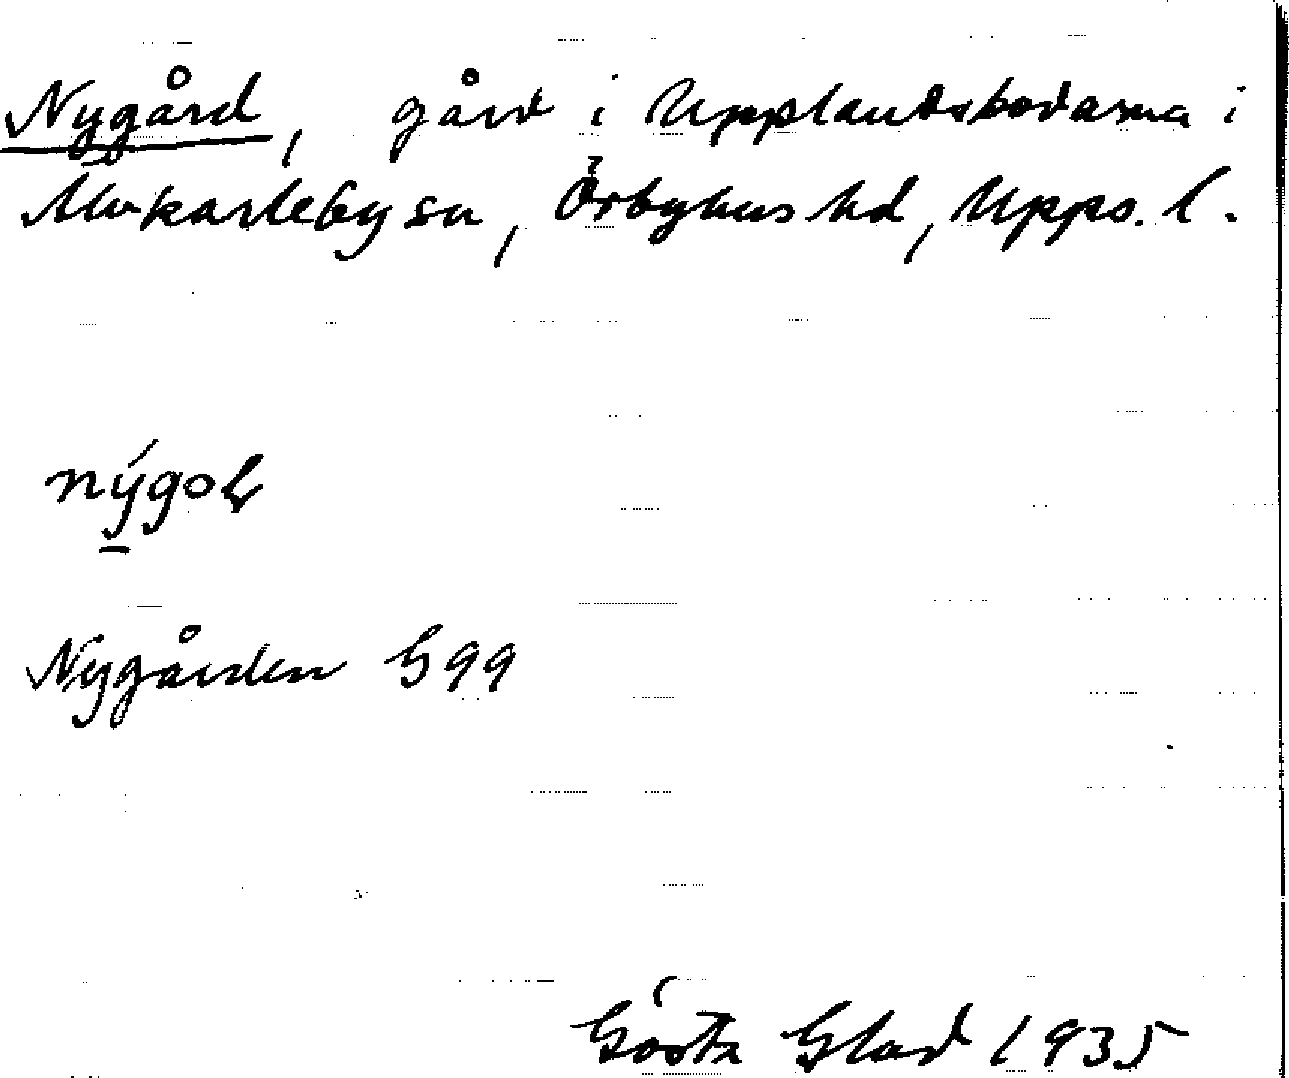 Nygård, gård i Upplandsbodarna i
Älvkarleby sn, Örbyhus hd, Upps. l.
nýgoḷ
Nygården G99
Gösta Glad 1935